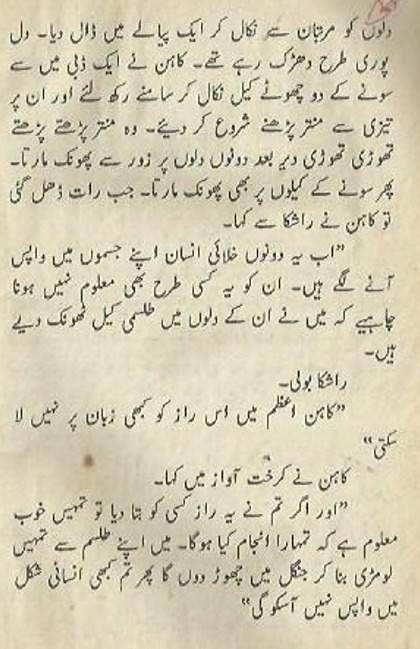 دلوں کو مرتبان سے نکال کر ایک پیالے میں ڈال دیا۔ دل
پوری طرح دھڑک رہے تھے۔ کاہن نے ایک ڈبی میں سے
سونے کے دو چھوٹے کیل نکال کر سامنے رکھ لئے اور ان پر
تیزی سے منتر پڑھنے شروع کر دیئے۔ وہ منتر پڑھتے پڑھتے
تھوڑی تھوڑی دیر بعد دونوں دلوں پر زور سے پھونک مارتا۔
پھر سونے کے کیلوں پر بھی پھونک مارتا۔ جب رات ڈھل گئی
تو کاہن نے راشکا سے کہا۔
"اب یہ دونوں خلائی انسان اپنے جسموں میں واپس
آنے لگے ہیں۔ ان کو یہ کسی طرح بھی معلوم نہیں ہونا
چاہیے کہ میں نے ان کے دلوں میں طلسمی کیل ٹھونک دیے
ہیں۔
راشکا بولی۔
"کاہن اعظم میں اس راز کو کبھی زبان پر نہیں لا
سکتی"
کاہن نے کرخت آواز میں کہا۔
"اور اگر تم نے یہ راز کسی کو بتا دیا تو تمہیں خوب
معلوم ہے کہ تمہارا انجام کیا ہوگا۔ میں اپنے طلسم سے تمہیں
لومڑی بنا کر جنگل میں چھوڑ دوں گا پھر تم کبھی انسانی شکل
میں واپس نہیں آسکو گی"